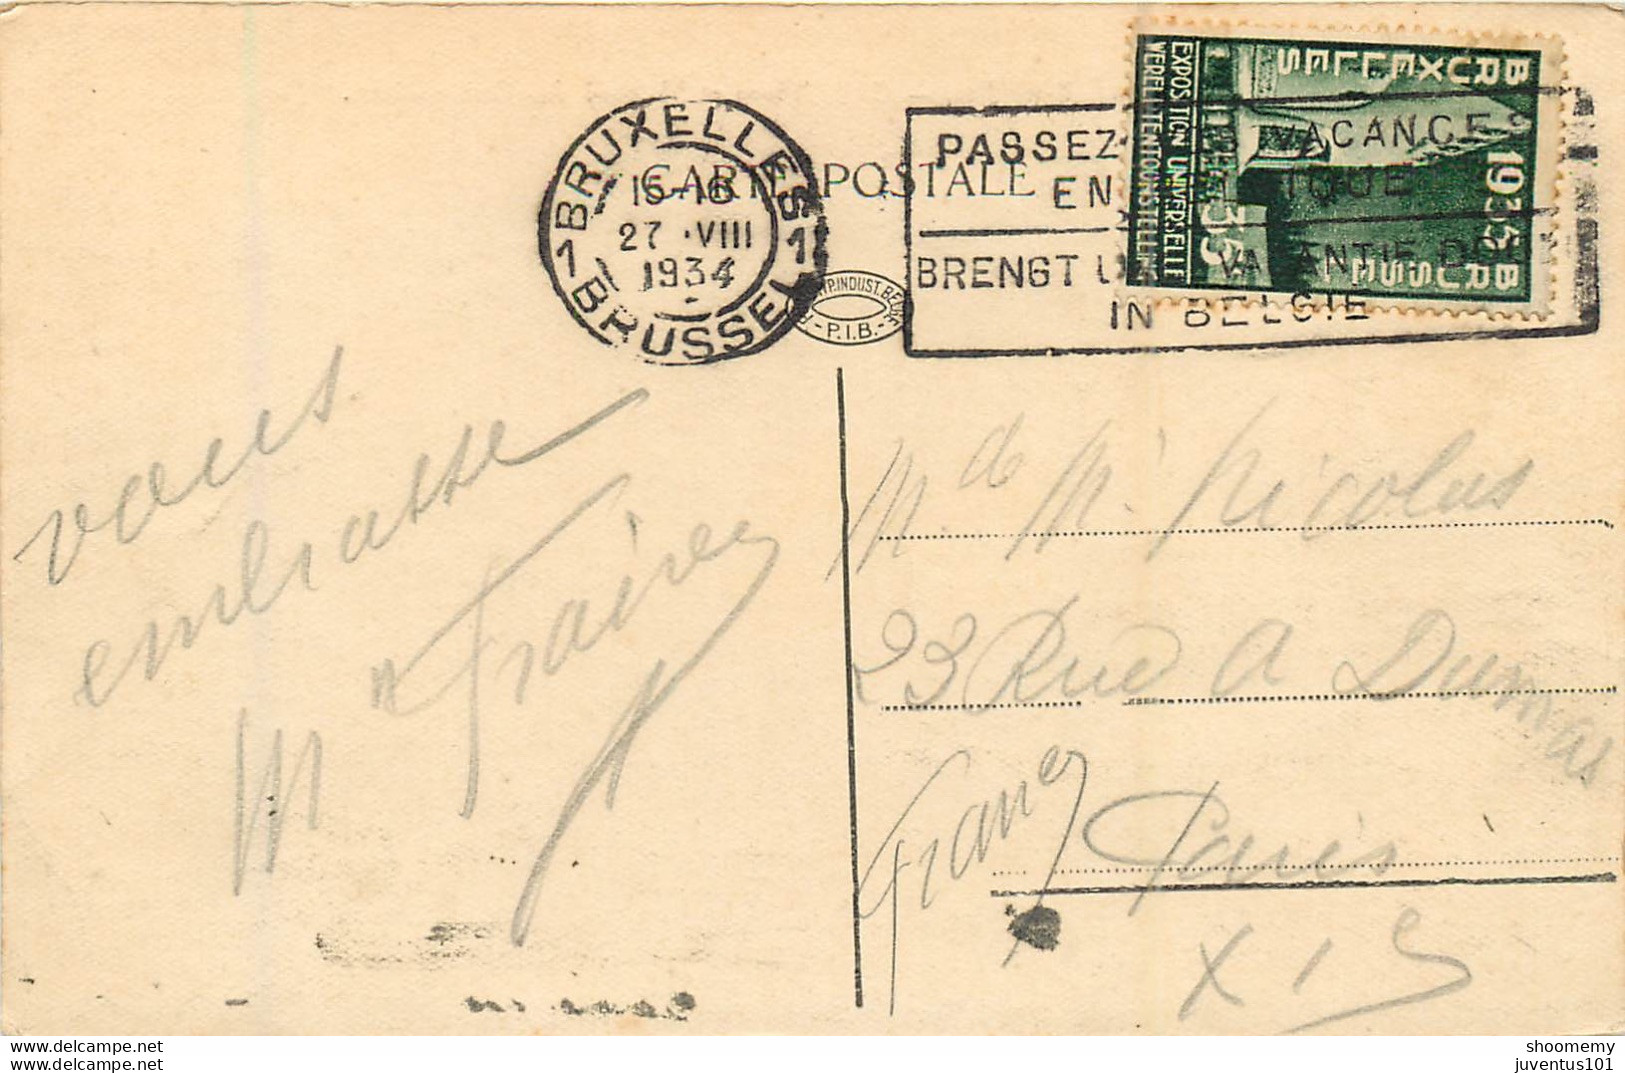 CARTE POSTALE
BRUXELLES
15-16
27 .VIII
1934
1 1
BRUSSEL
P.I.B.
PASSEZ VACANCES
EN
BRENGT UW VACANTIE DOOR
IN BELGIE
BRUXELLES
1935
BRUSSEL
EXPOSITION UNIVERSELLE
WERELDTENTOONSTELLING
35
vous
embrasse
M
Mde M. Nicolas
23 Rue A Dumas
France
Paris
XIe
www.delcampe.net
www.delcampe.net
shoomemy
juventus101